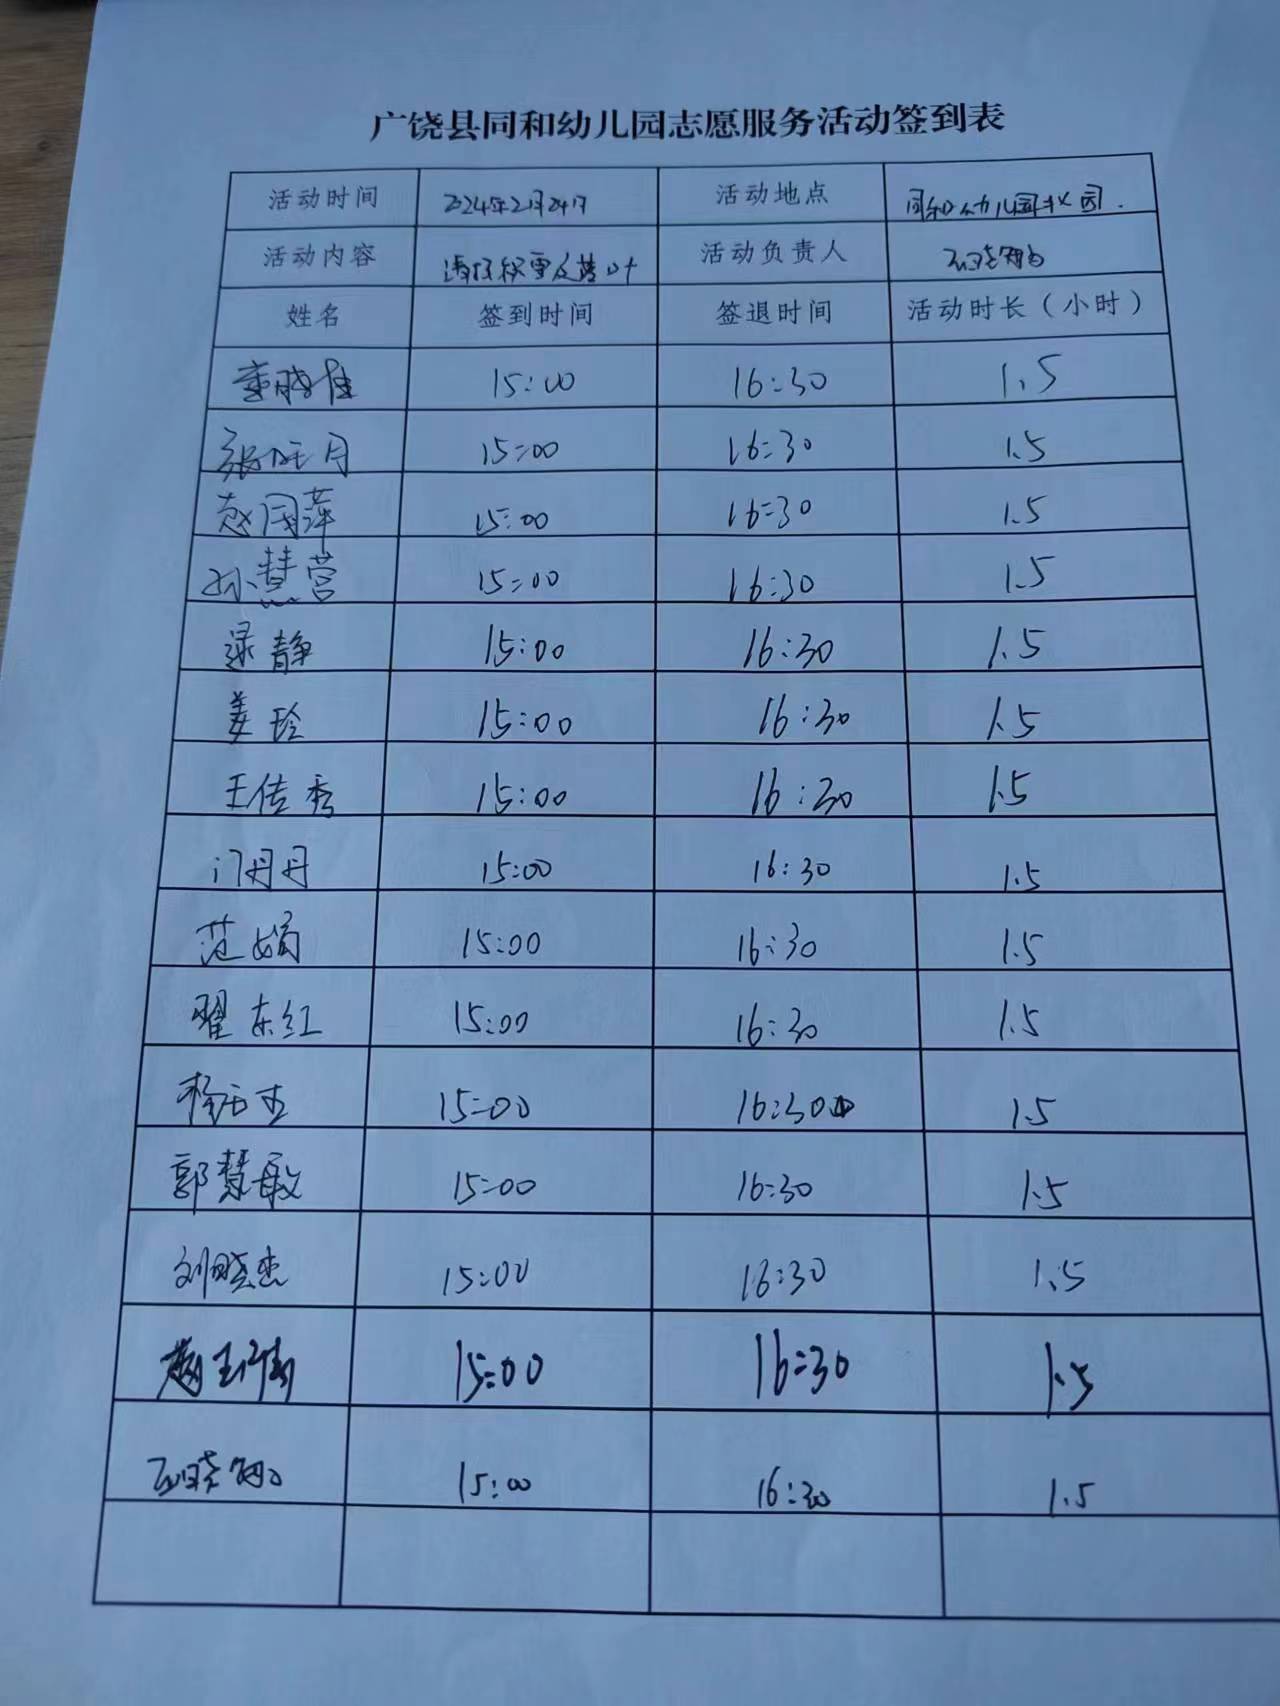 广饶县同和幼儿园志愿服务活动签到表
活动时间 2024年2月24日 活动地点 同和幼儿园校园.
活动内容 清扫积雪及落叶 活动负责人
姓名 签到时间 签退时间 活动时长（小时）
15:00 16:30 1.5
张旺月 15:00 16:30 1.5
赵国萍 15:00 16:30 1.5
孙慧营 15:00 16:30 1.5
静 15:00 16:30 1.5
姜玲 15:00 16:30 1.5
王佳秀 15:00 16:30 1.5
门丹丹 15:00 16:30 1.5
范娟 15:00 16:30 1.5
翟东红 15:00 16:30 1.5
15:00 16:30 1.5
郭慧敏 15:00 16:30 1.5
刘晓杰 15:00 16:30 1.5
15:00 16:30 1.5
15:00 16:30 1.5